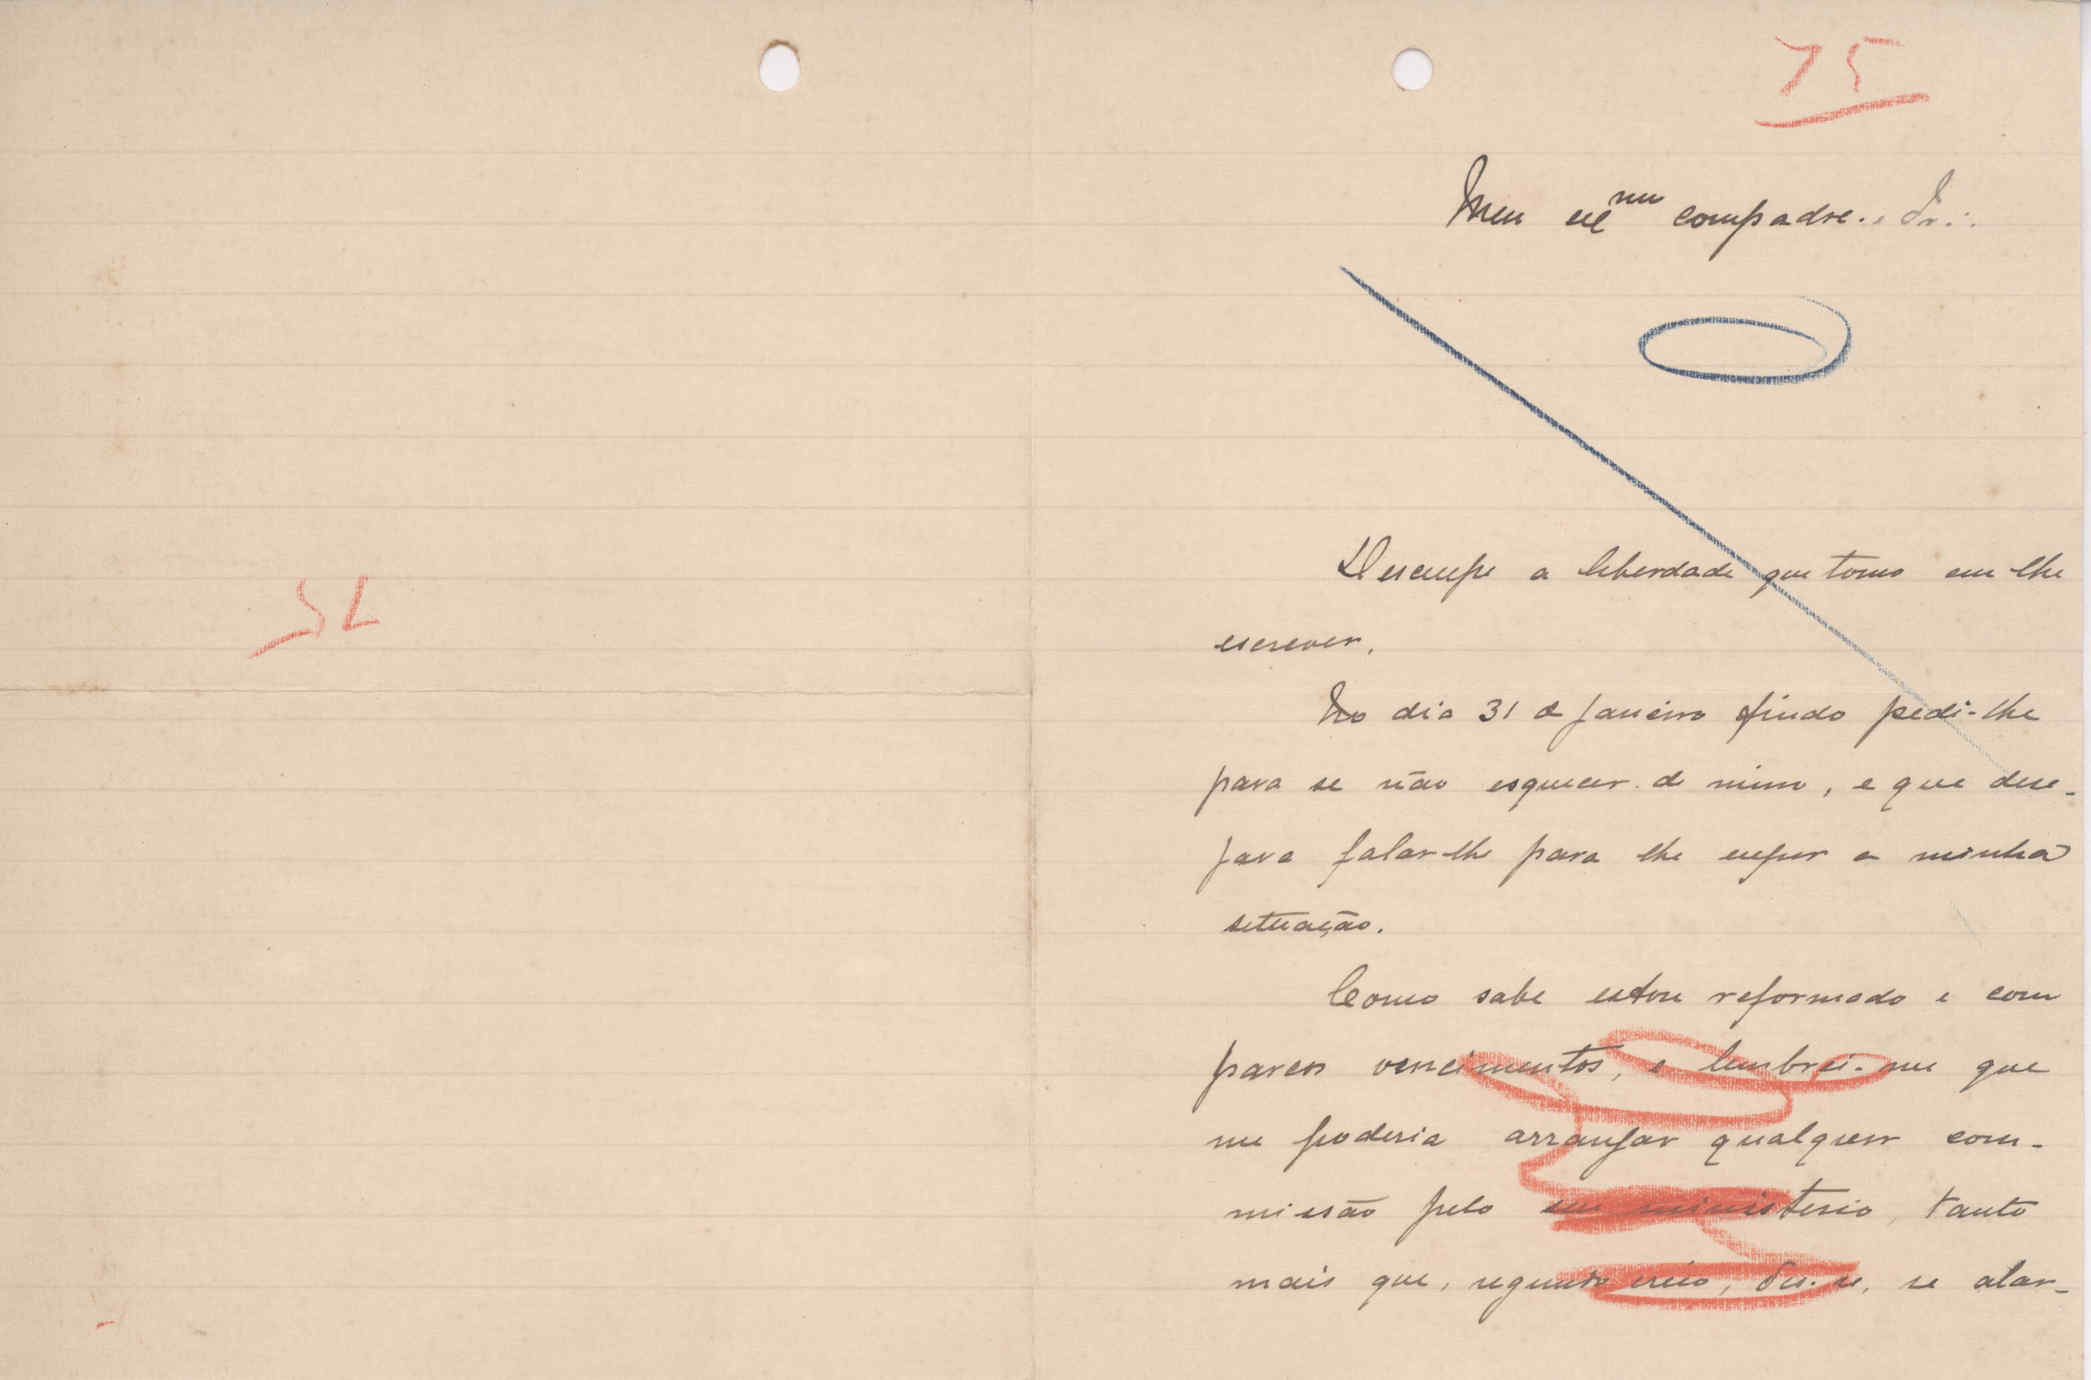 75
Meu exmo compadre e Ir∴
Desculpe a liberdade que tomo em lhe
escrever.
No dia 31 de Janeiro findo pedi-lhe
para se não esquecer de mim, e que dese-
java falar-lhe para lhe expor a minha
situação.
Como sabe estou reformado e com
parcos vencimentos, e lembrei-me que
me poderia arranjar qualquer com-
missão pelo seu ministerio, tanto
mais que, segundo creio, diz-se, se alar-